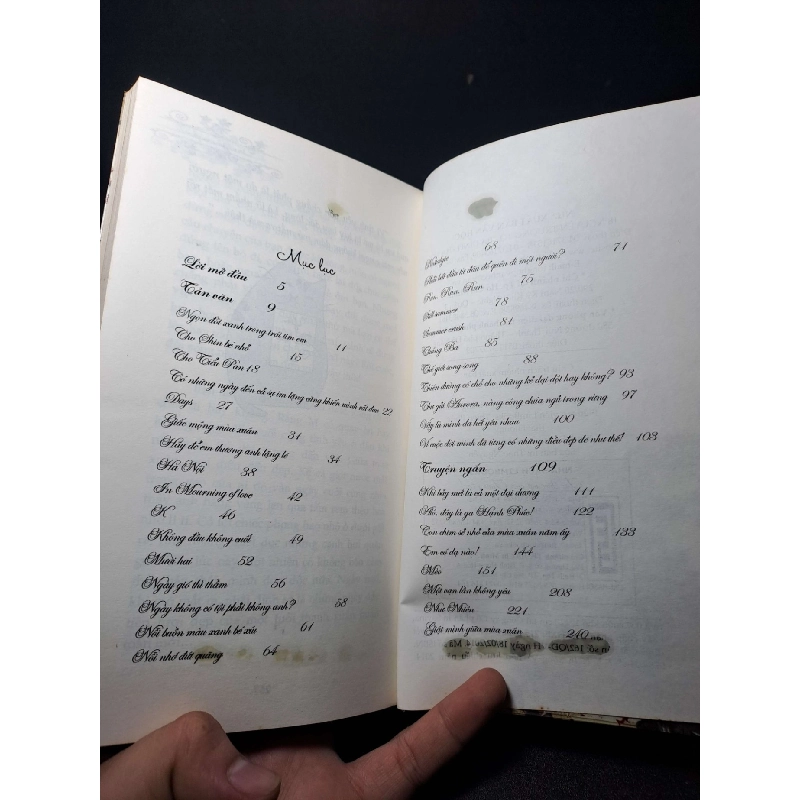 Mục lục
Lời mở đầu 5
Tản văn 9
Ngọn đồi xanh trong trái tim em 11
Cho Shin bé nhỏ 15
Cho Tiểu Pàn 18
Có những ngày đến cả sự im lặng cũng khiến mình rất đau 22
Days 27
Giấc mộng mùa xuân 31
Hãy để em thương anh lặng lẽ 34
Hà Nội 38
In Mourning of love 42
K 46
Không đầu không cuối 49
Mười hai 52
Ngày gió thì thầm 56
Ngày không có tội phải không anh? 58
Nỗi buồn màu xanh bé xíu 61
Nỗi nhớ đứt quãng 64
Nostalgie 68
Phải bắt đầu từ đâu để quên đi một người? 71
Run, Run, Run 75
Still summer 78
Summer crush 81
Tháng Ba 85
Thế giới song song 88
Thiên đường có chỗ cho những kẻ dại dột hay không? 93
Thư gửi Aurora, nàng công chúa ngủ trong rừng 97
Vậy là mình đã hết yêu nhau 100
Vì cuộc đời mình đã từng có những điều đẹp đẽ như thế! 103
Truyện ngắn 109
Khi hãy mơ ta cả một đại dương 111
Hò, đây là ga Hạnh Phúc! 122
Con chim sẻ nhỏ của mùa xuân năm ấy 133
Em có dạ nào! 144
Mèo 151
Một vạn lần không yêu 208
Như Nhiên 221
Giới mình giữa mùa xuân 240